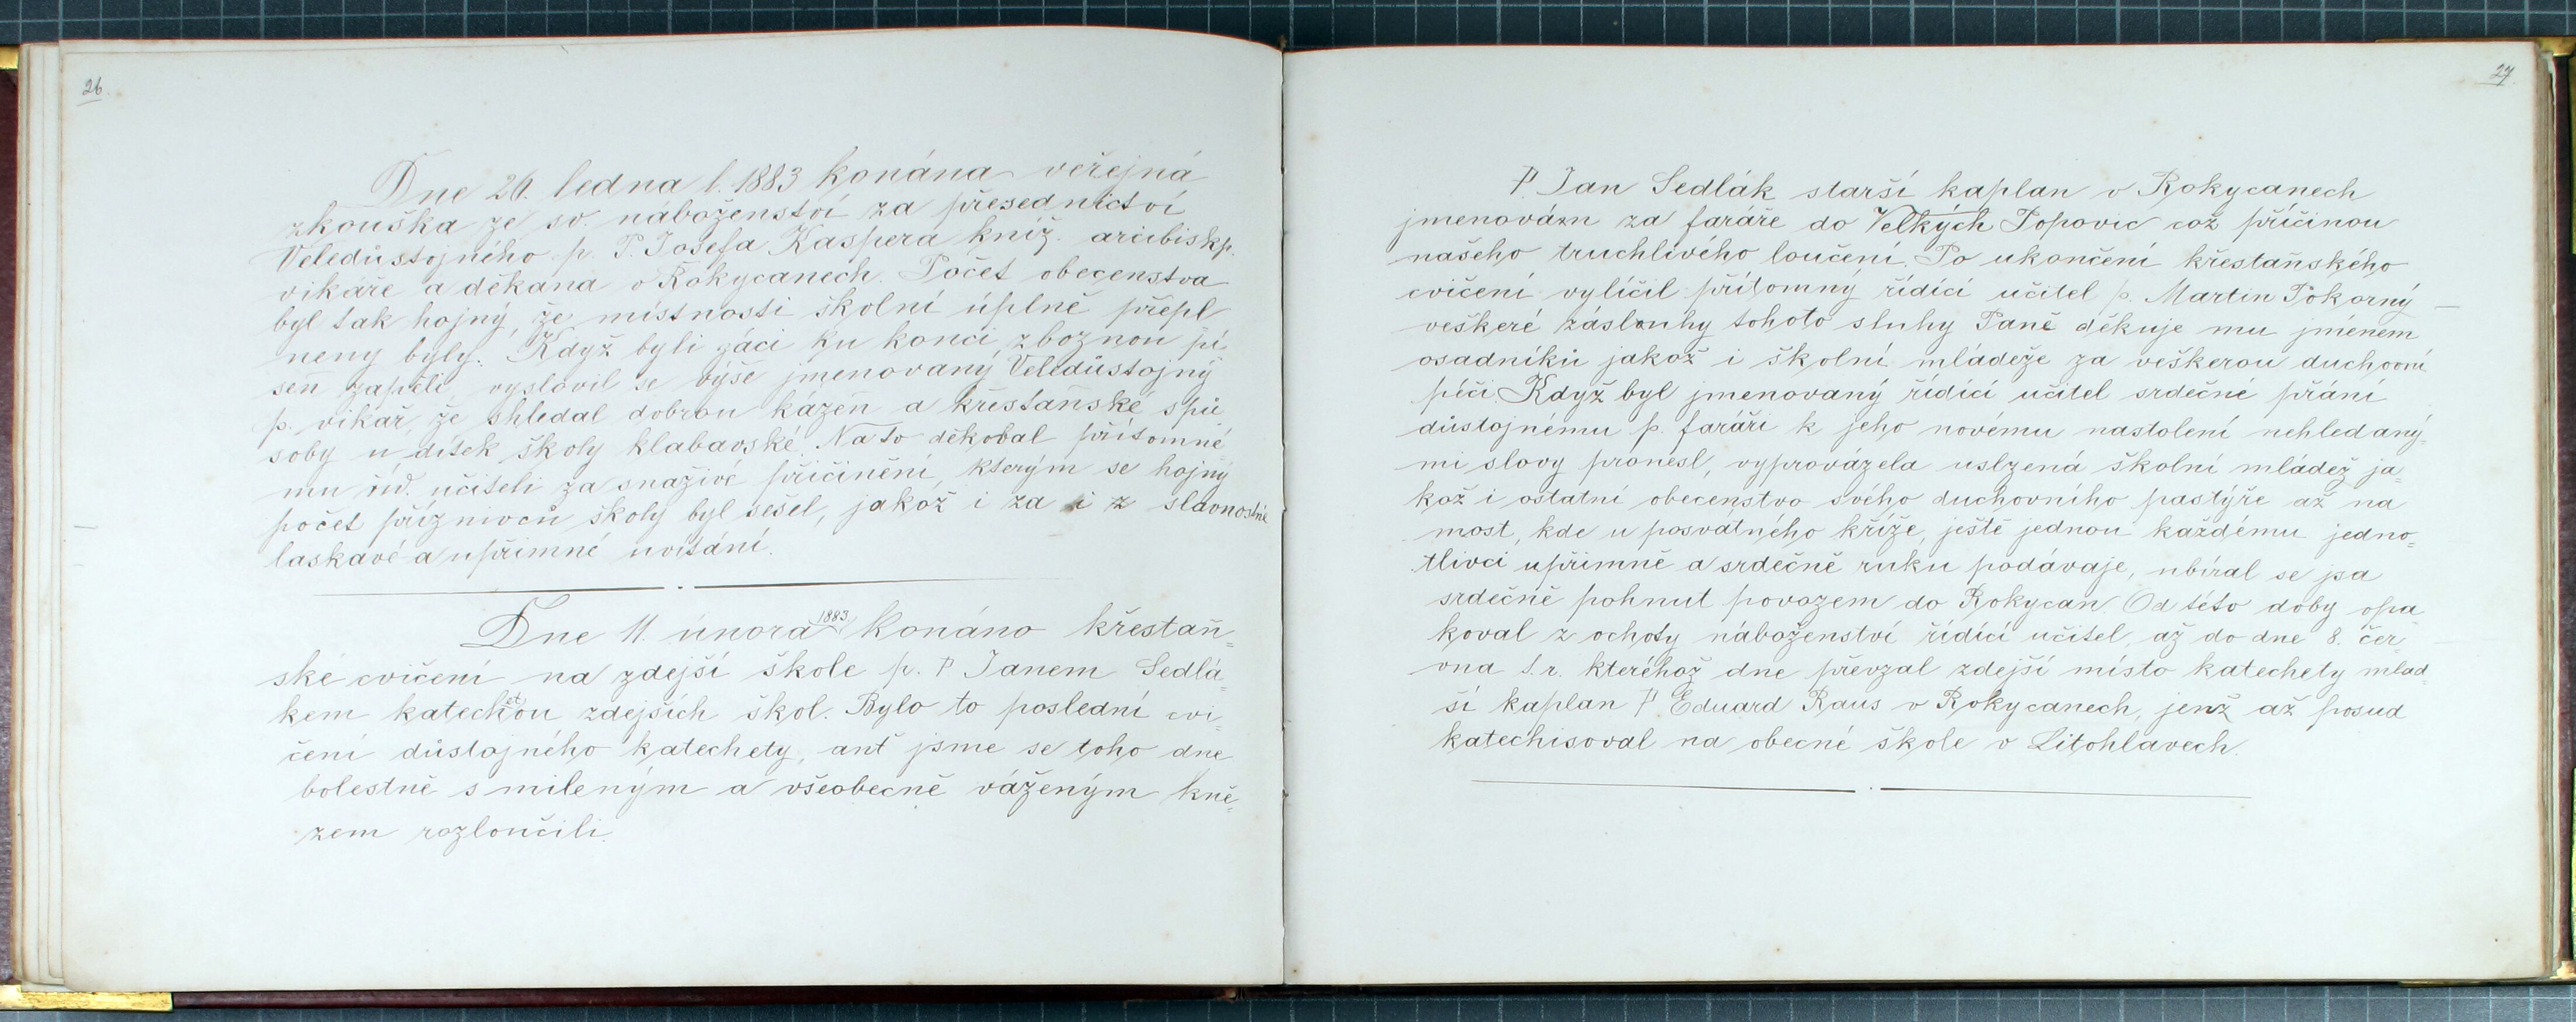 26.
Dne 26. ledna l. 1883 konána veřejná
zkouška ze sv. náboženství za přesednictví
Veledůstojného p. P. Josefa Kaspera kníž. arcibiskp.
vikáře a děkana v Rokycanech. Počet obecenstva
byl tak hojný, že místnosti školní úplně přepl
neny byly. Když byli záci ku konci zboznou pí
seň zapěli vyslovil se výše jmenovaný Veledůstojný
p. vikář, že shledal dobrou kázeň a křestaňské spů
soby u dítek školy klabavské. Na to děkobal přítomné
mu říd. učiteli za snaživé přičinění, kterým se hojný
počet příznivců školy byl sešel, jakož i za i z slavnostně
laskavé a upřimné uvítání.
Dne 11. února 1883 konáno křestaň=
ské cvičení na zdejší škole p. P Janem Sedlá=
kem katechetou zdejších škol. Bylo to poslední cvi=
čení důstojného katechety, anť jsme se toho dne
bolestně s mileným a všeobecně váženým kně=
zem rozloučili.
27.
P. Jan Sedlák starší kaplan v Rokycanech
jmenován za faráře do Velkých Popovic což příčinou
našeho truchlivého loučení. Po ukončení křestaňského
cvičení vylíčil přítomný řídící učitel p. Martin Pokorný –
veškeré zásluhy tohoto sluhy Paně děkuje mu jménem
osadníků jakož i školní mládeže za veškerou duchovní
péči Když byl jmenovaný řídící učitel srdečné přání
důstojnému p. faráři k jeho novému nastolení nehledaný=
mi slovy pronesl, vyprovázela uslzená školní mládež ja=
kož i ostatní obecenstvo svého duchovního pastýře až na
most, kde u posvátného kříže, ještě jednou každému jedno=
tlivci upřimně a srdečně ruku podávaje, ubíral se jsa
srdečně pohnut povozem do Rokycan. Od této doby opa
koval z ochoty náboženství řídící učitel, až do dne 8. čer=
vna t. r. kteréhož dne převzal zdejší místo katechety mlad=
ší kaplan P. Eduard Raus v Rokycanech, jenž až posud
katechisoval na obecné škole v Litohlavech.